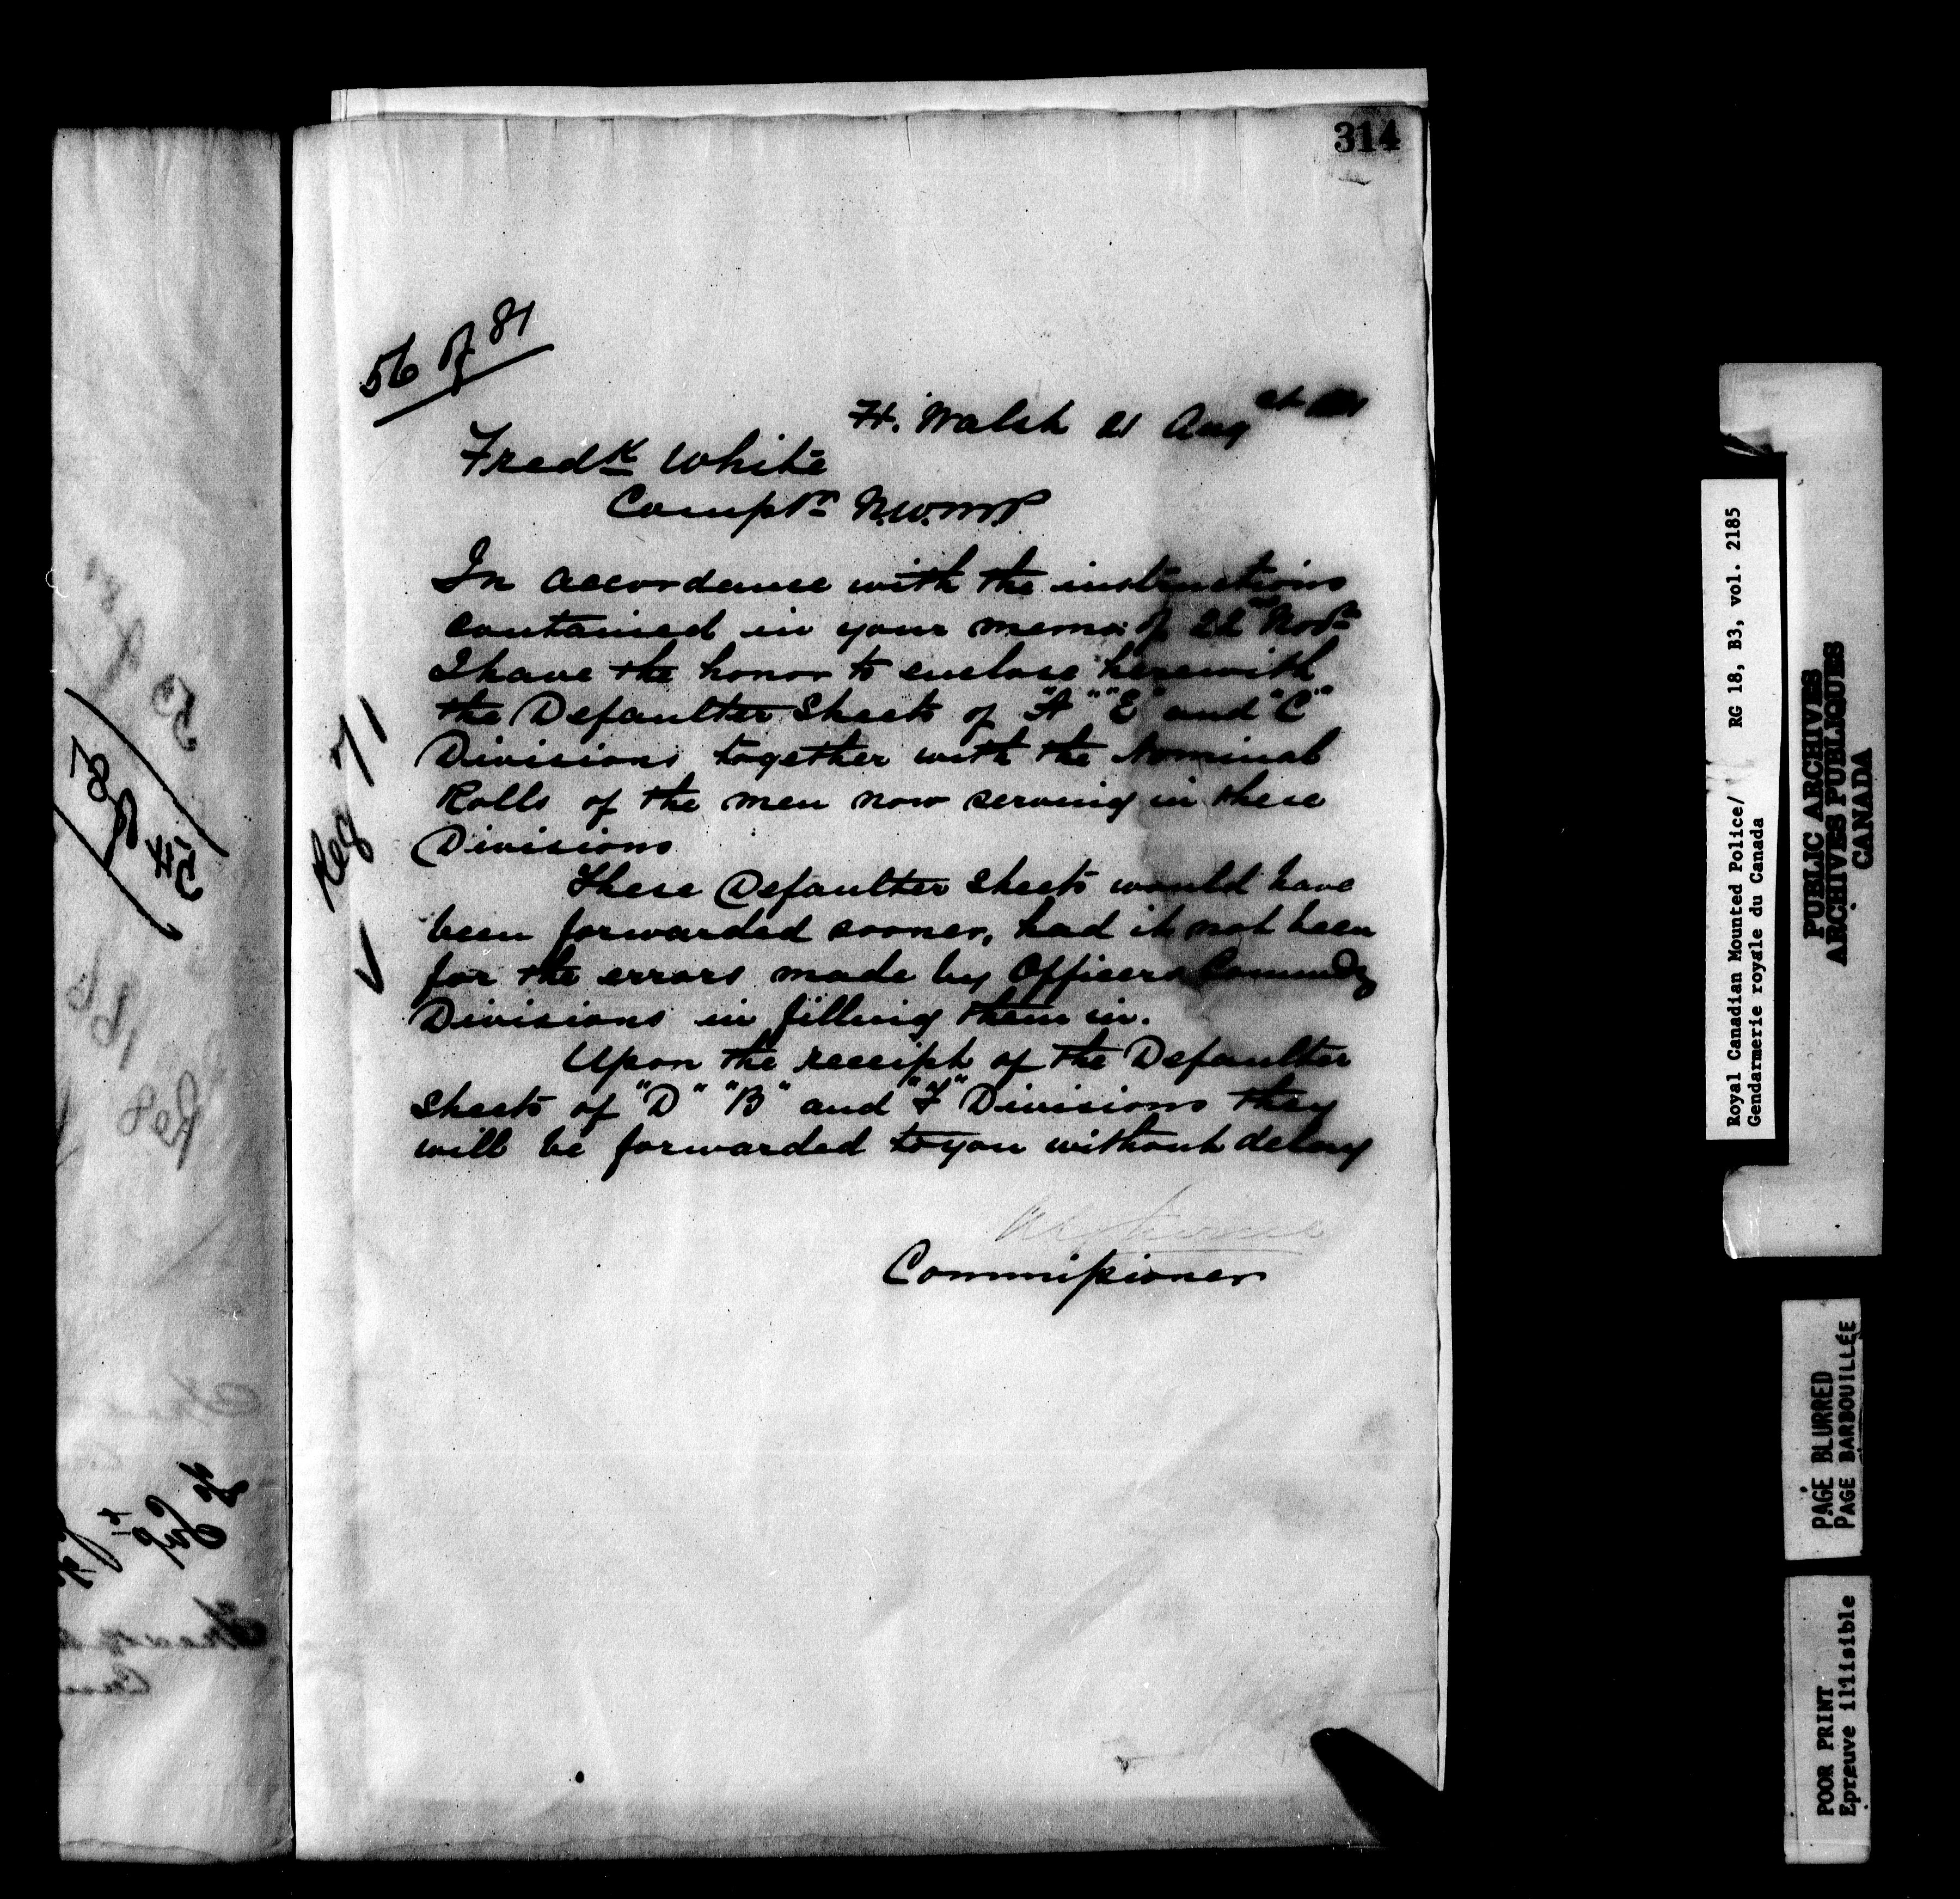 314
56 of 81
Ft. Walsh 21 Aug
Fredk White
Comptr N.W.M.P
In accordance with the instructions
contained in your memo: of 22nd Novr
I have the honor to enclose herewith
the Defaulter Sheets of "A" "E" and "C"
Divisions together with the Nominal
Rolls of the men now serving in these
Divisions
These Defaulter Sheets would have
been forwarded sooner, had it not been
for the errors made by Officers Commdg
Divisions in filling them in.
Upon the receipt of the Defaulter
Sheets of "D" "B" and "F" Divisions they
will be forwarded to you without delay
Commissioner
Reg 71
Royal Canadian Mounted Police/ RG 18, B3, vol. 2185
Gendarmerie royale du Canada
PUBLIC ARCHIVES
ARCHIVES PUBLIQUES
CANADA
PAGE BLURRED
PAGE BARBOUILLÉE
POOR PRINT
Epreuve illisible